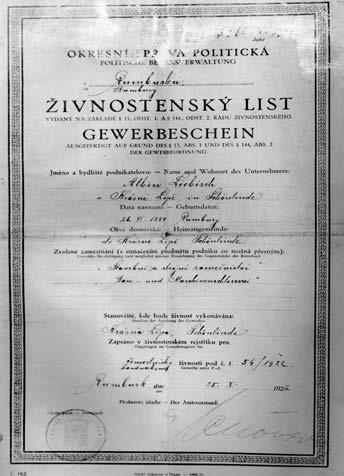 OKRESNÍ SPRÁVA POLITICKÁ
POLITISCHE BEZIRKSVERWALTUNG
v Rumburku
in Rumburg
ŽIVNOSTENSKÝ LIST
VYDANÝ NA ZÁKLADĚ § 13, ODST. 1. A § 144, ODST. 2. ŘÁDU ŽIVNOSTENSKÉHO.
GEWERBESCHEIN
AUSGEFERTIGT AUF GRUND DES § 13, ABS. 1 UND DES § 144, ABS. 2
DER GEWERBEORDNUNG.
Jméno a bydliště podnikatelovo: – Name und Wohnort des Unternehmers:
Albin Liebisch
v Krásné Lípě in Schönlinde
Data narození: – Geburtsdaten:
26. VI. Rumburg
Obec domovská: – Heimatsgemeinde:
Krásná Lípa Schönlinde
Zvolené zaměstnání (s označením předmětu podniku co možná přesným):
Gewählte Beschäftigung (mit möglichst genauer Bezeichnung des Gegenstandes des Betriebes):
Stavební a strojní zámečnictví
Bau- und Maschinenschlosserei
Stanoviště, kde bude živnost vykonávána:
Standort der Ausübung des Gewerbes:
Krásná Lípa, Schönlinde
Zapsáno v živnostenském rejstříku pro
Eingetragen im Gewerberegister für
řemeslnické živnosti pod č. ř. 54/1922
handwerksm. Gewerbe unter P.-Z.
Rumburk dne 25. X. 1922
Přednosta úřadu: – Der Amtsvorstand: